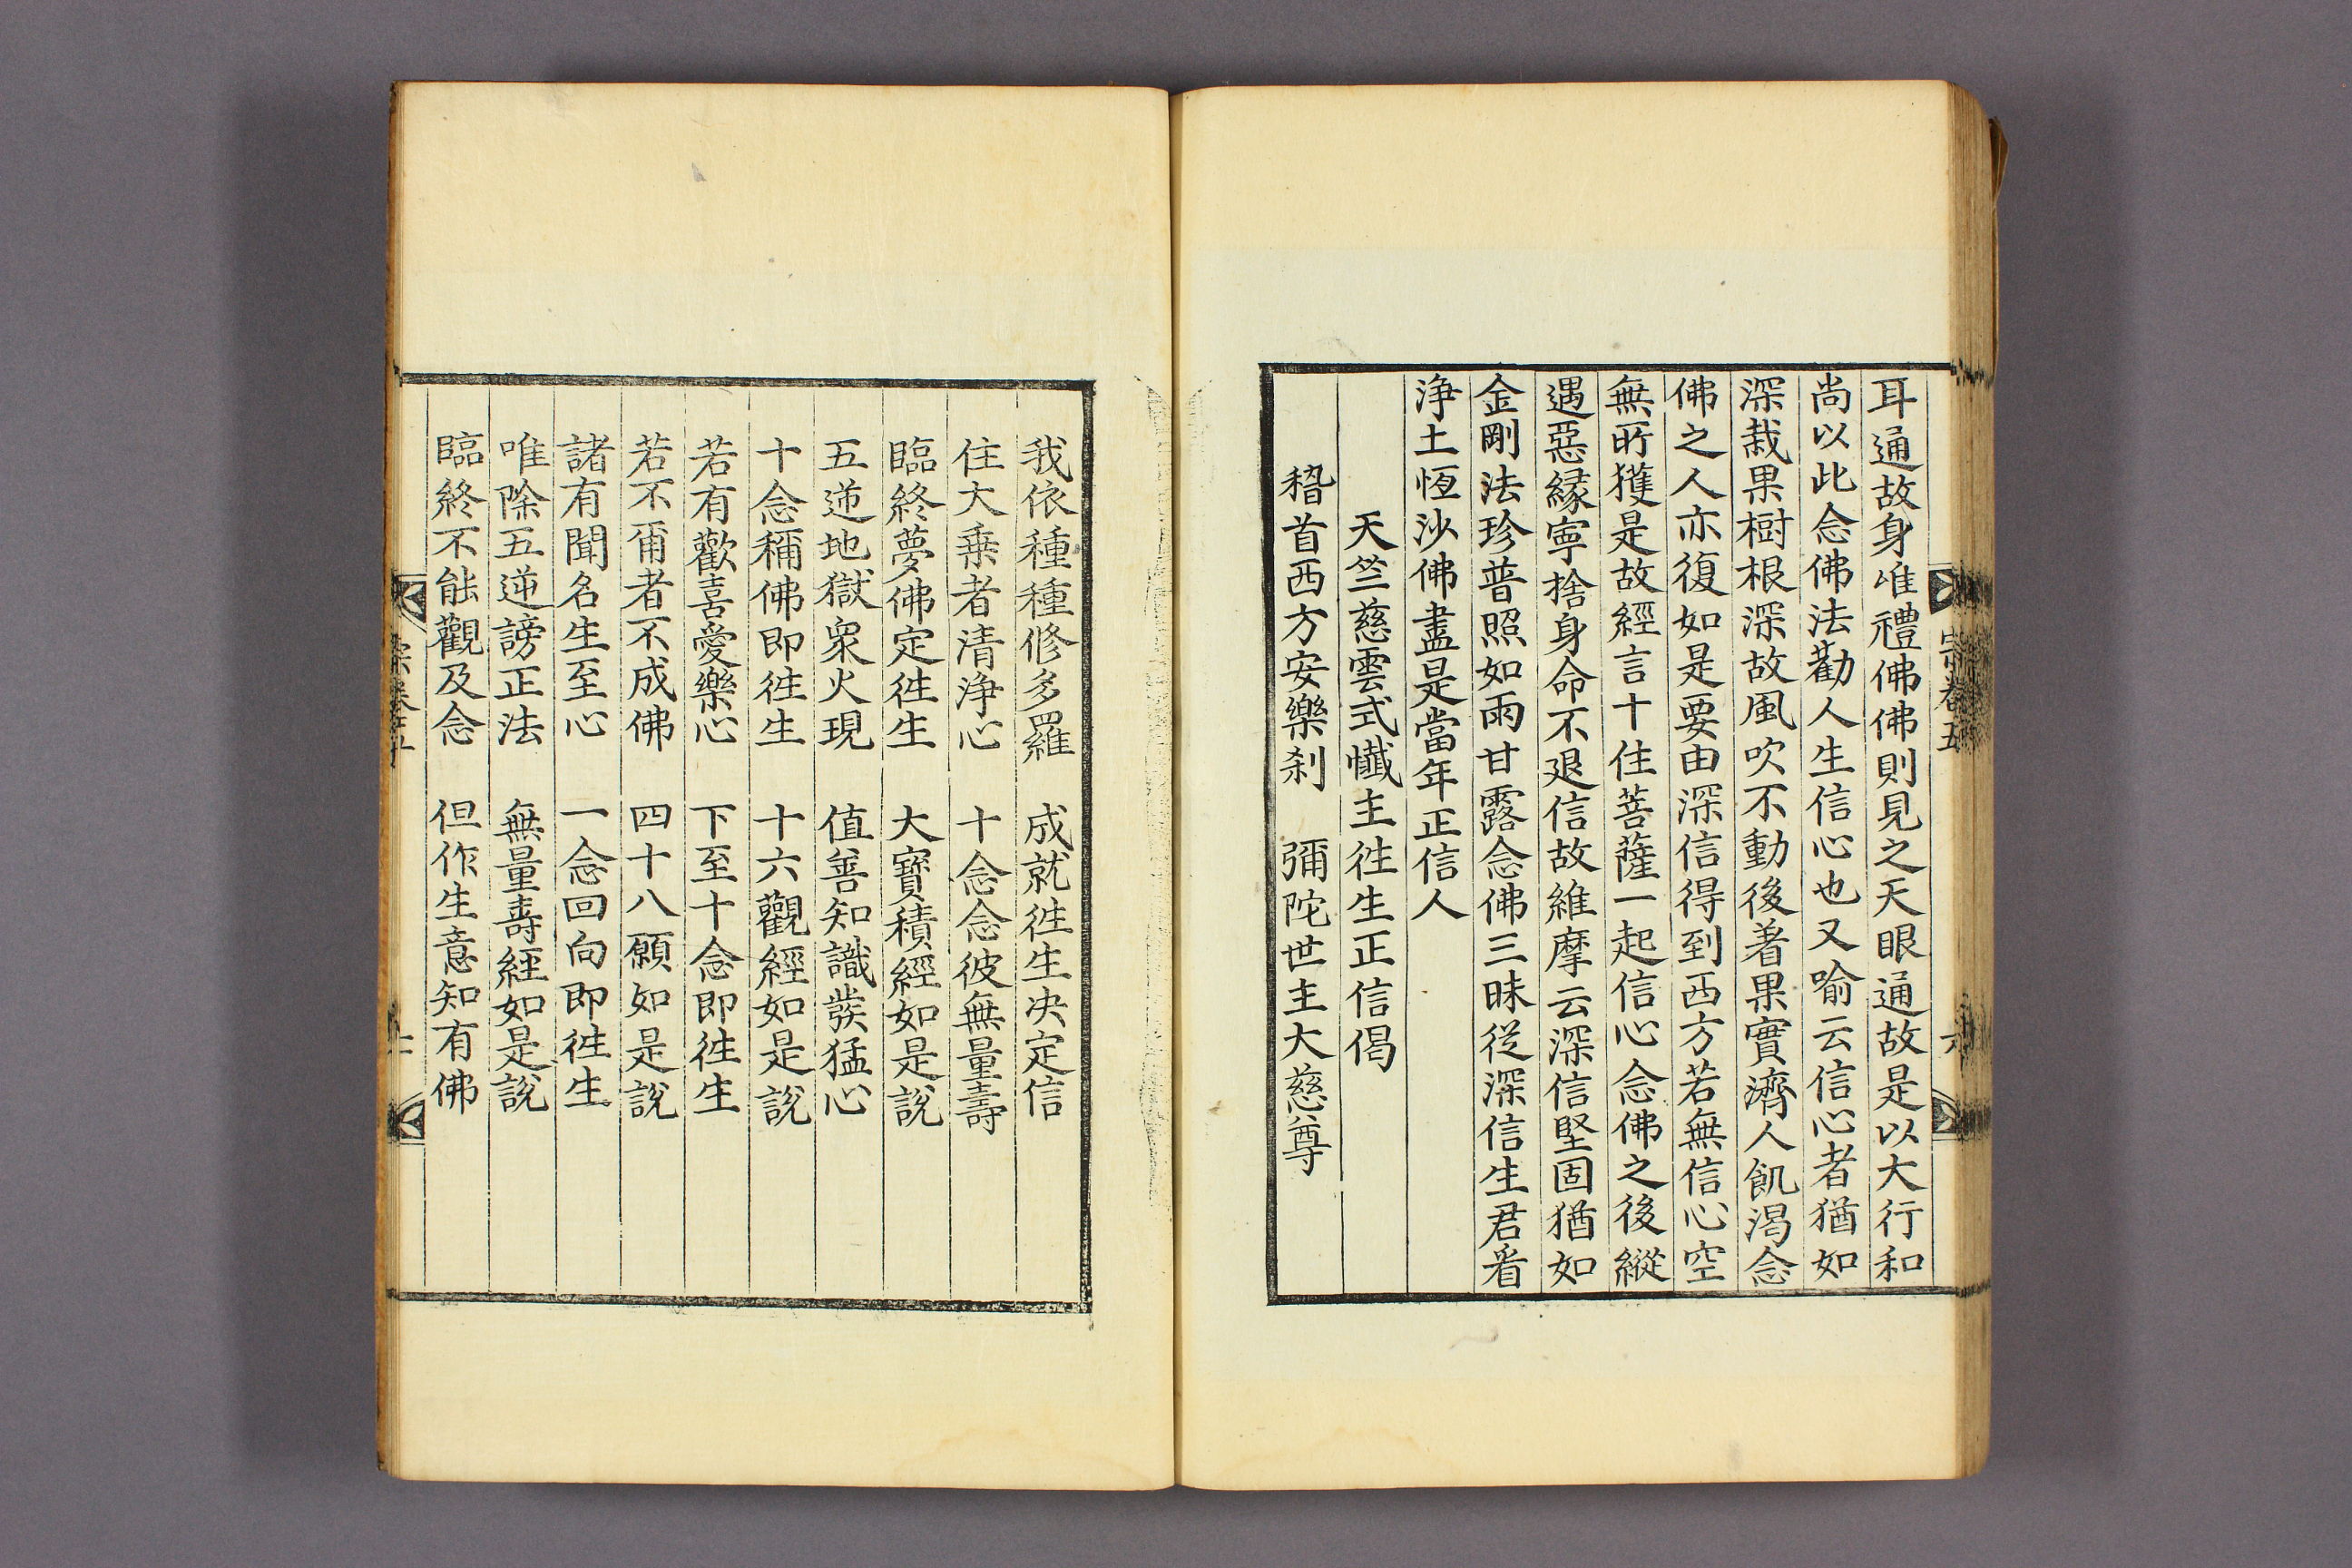 耳通故身唯禮佛佛則見之天眼通故是以大行和
尚以此念佛法勸人生信心也又喻云信心者猶如
深栽果樹根深故風吹不動後着果實濟人飢渴念
佛之人亦復如是要由深信得到西方若無信心空
無所獲是故經言十住菩薩一起信心念佛之後縱
遇惡緣寧捨身命不退信故維摩云深信堅固猶如
金剛法珍普照如雨甘露念佛三昧從深信生君看
淨土恆沙佛盡是當年正信人
天竺慈雲式懺主徃生正信偈
稽首西方安樂刹　彌陀世主大慈尊
宗卷五
六
我依種種修多羅　成就徃生決定信
住大乗者清淨心　十念念彼無量壽
臨終夢佛定徃生　大寶積經如是說
五逆地獄衆火現　值善知識發猛心
十念稱佛即徃生　十六觀經如是說
若有歡喜愛樂心　下至十念即徃生
若不爾者不成佛　四十八願如是說
諸有聞名生至心　一念回向即徃生
唯除五逆謗正法　無量壽經如是說
臨終不能觀及念　但作生意知有佛